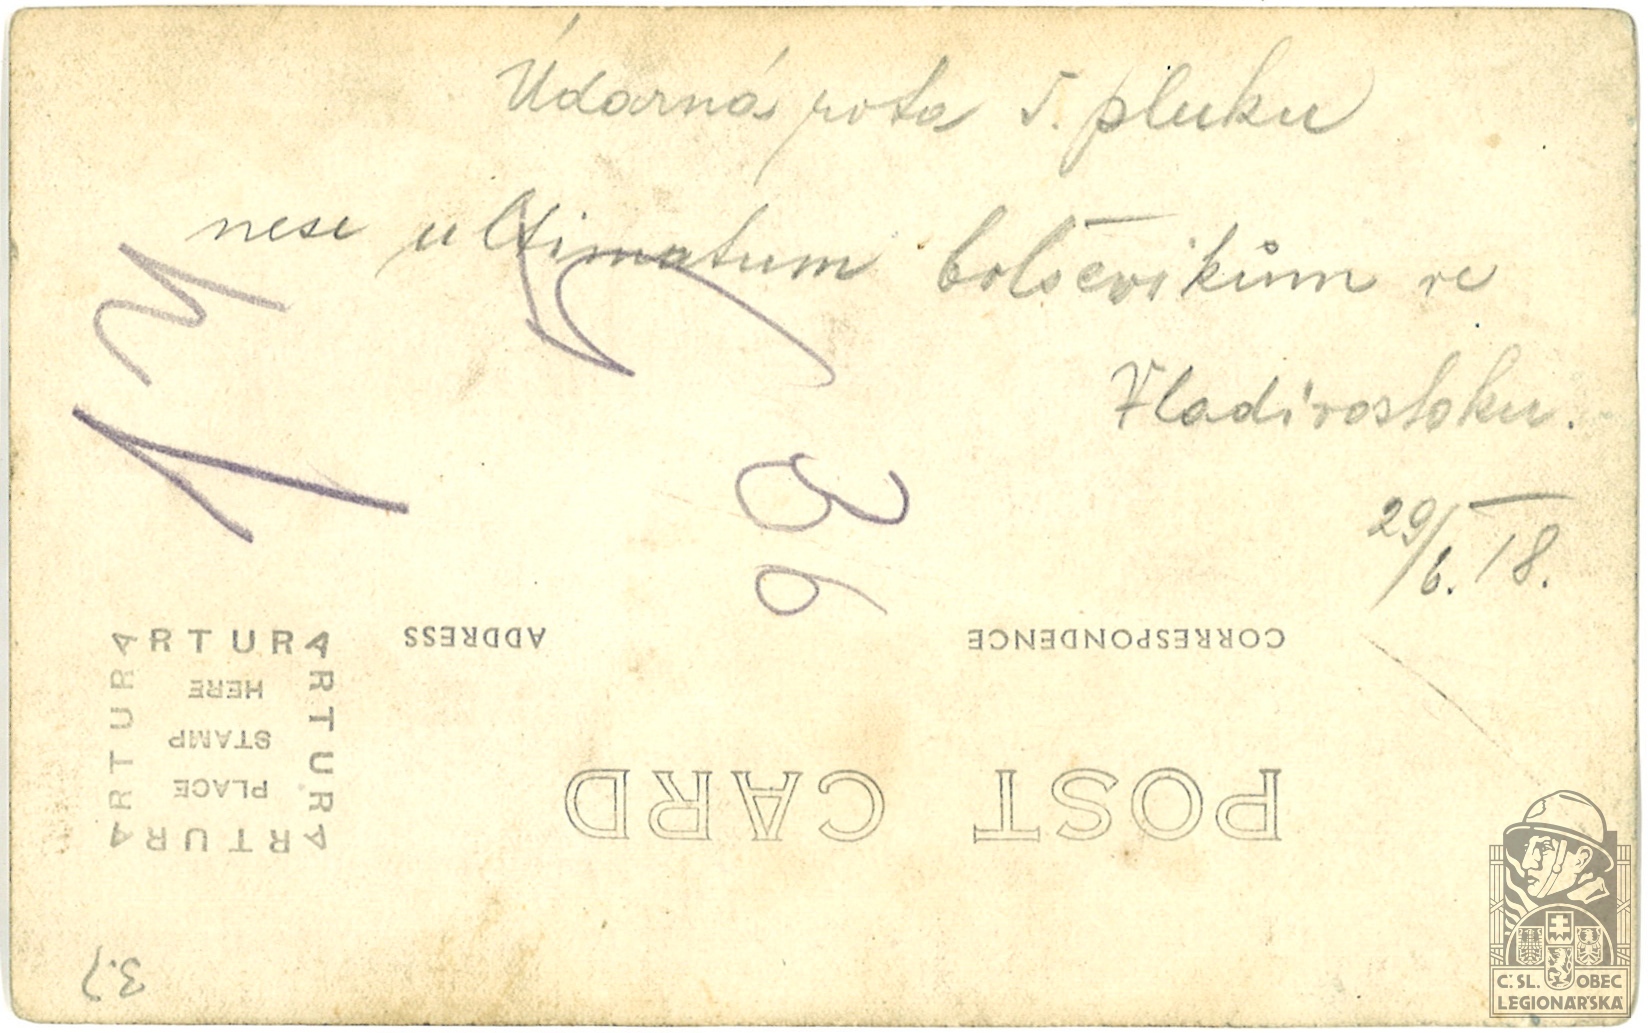 Údarná rota 5. pluku
nese ultimatum bolševikům ve
Vladivostoku.
29/6. 18.
ADDRESS
CORRESPONDENCE
POST CARD
ARTURA
ARTURA
ARTURA
ARTURA
PLACE
STAMP
HERE
3.)
Č.SL. OBEC
LEGIONÁŘSKÁ